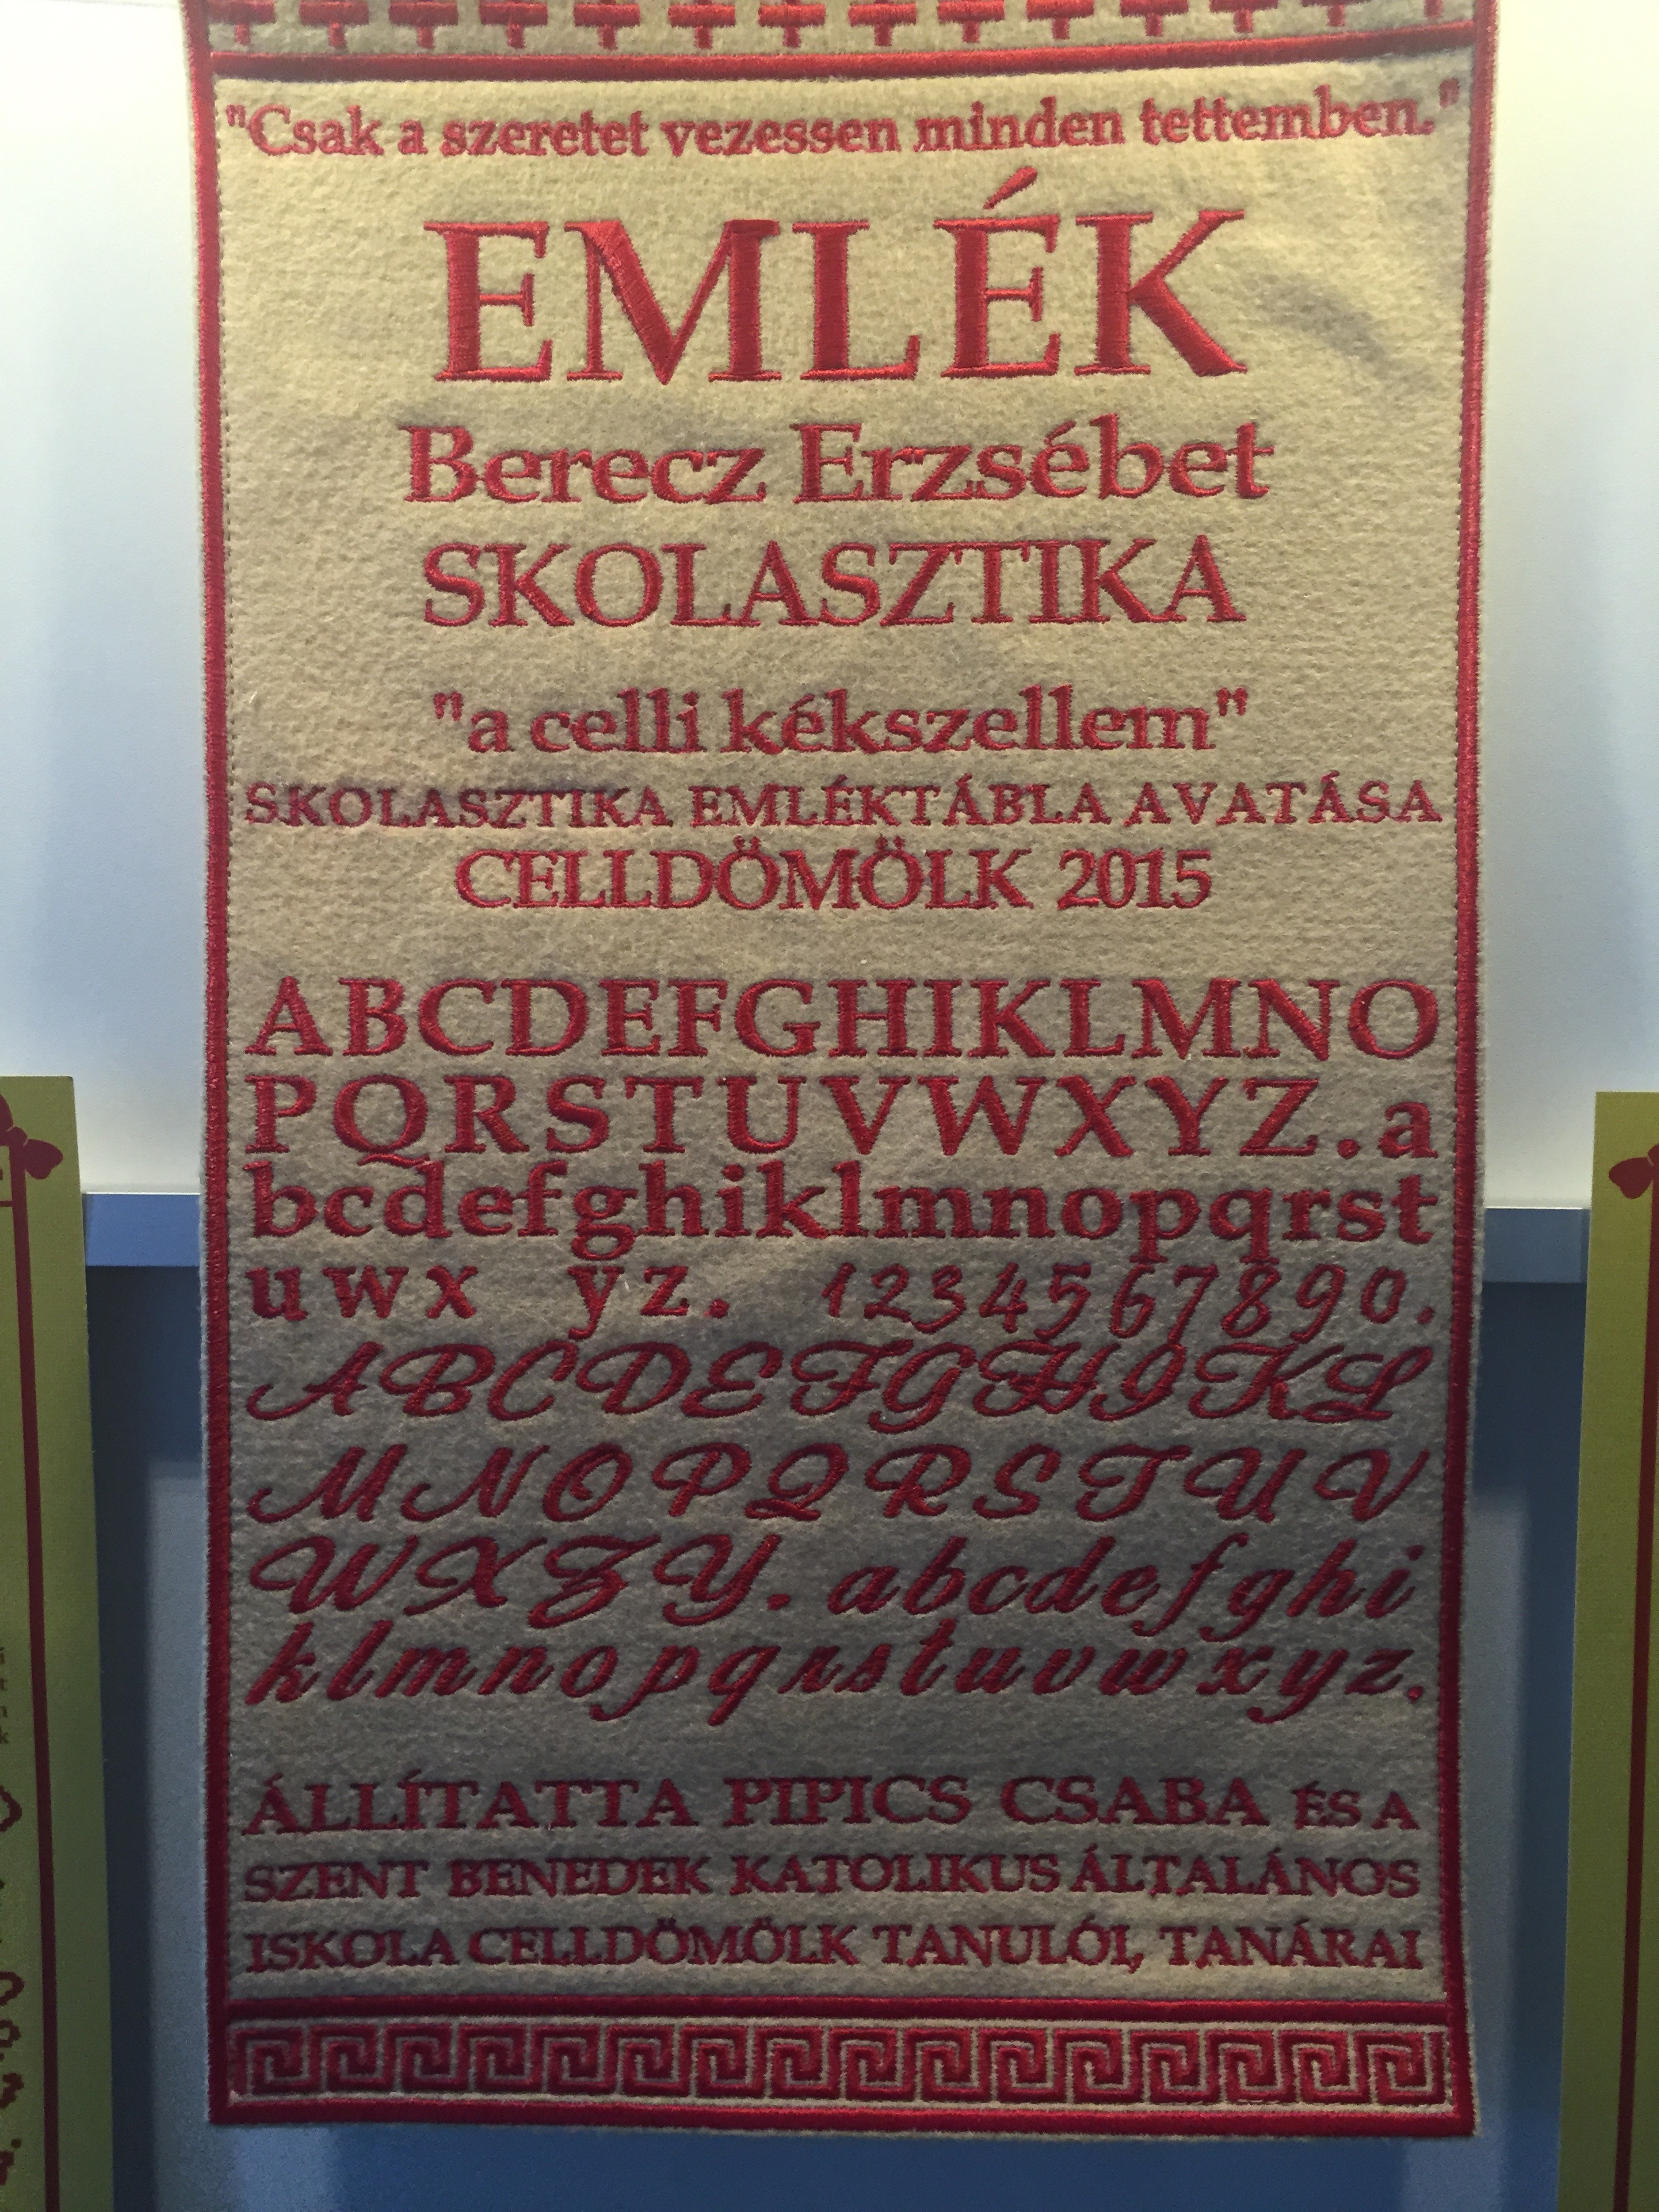 "Csak a szeretet vezessen minden tettemben."
EMLÉK
Berecz Erzsébet
SKOLASZTIKA
"a celli kékszellem"
SKOLASZTIKA EMLÉKTÁBLA AVATÁSA
CELLDÖMÖLK 2015
ABCDEFGHIKLMNO
PQRSTUVWXYZ.a
bcdefghiklmnopqrst
uwx yz. 1234567890.
ABCDEFGHIKL
MNOPQRSTUV
WXZY. abcdefghi
klmnopqrstuvwxyz.
ÁLLÍTATTA PIPICS CSABA ÉS A
SZENT BENEDEK KATOLIKUS ÁLTALÁNOS
ISKOLA CELLDÖMÖLK TANULÓI, TANÁRAI